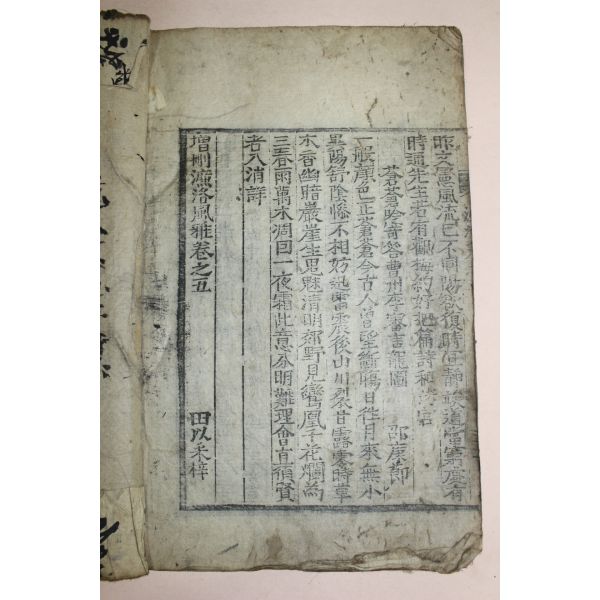 風流已不陽欲復時宜靜道當窮處有
時通先生若有觀梅約好把篇詩和
蒼蒼吟寄答曹州李審言龍圖 邵康節
一般顏色正蒼蒼今古人曾望斷腸日往月來無小
異陽舒陰慘不相妨迅雷震後山川裂甘露零時草
木香幽暗巖崖生鬼魅清明郊野見鸞凰千花爛為
三春雨萬木凋因一夜霜此意分明難理會直須賢
者入消詳
增刪濂洛風雅卷之五 田以采梓